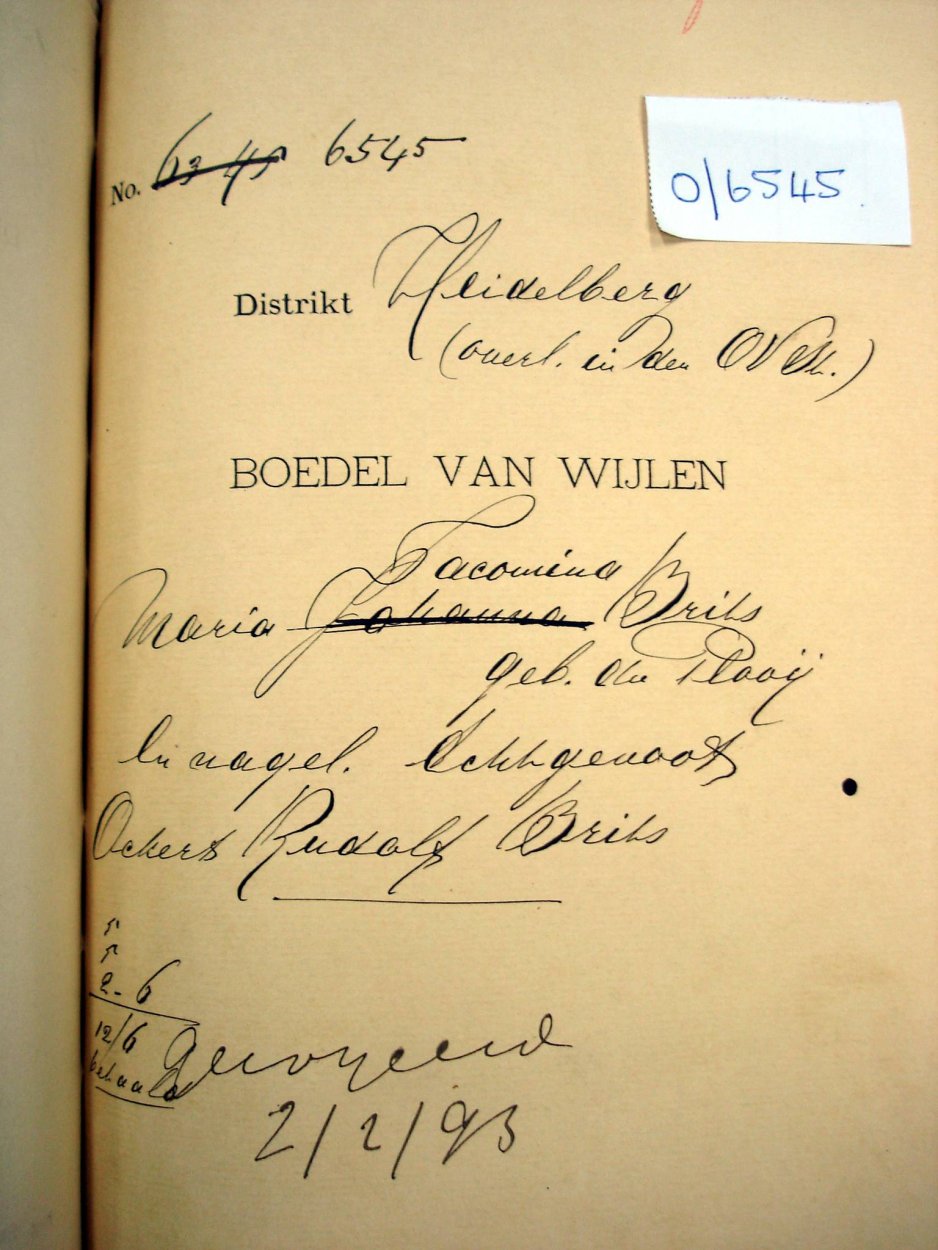 No. 6345 6545
0/6545
Distrikt Heidelberg
(overl. in den OVSt.)
BOEDEL VAN WIJLEN
Jacomina
Maria Johanna Brits
geb. du Plooij
En nagel. Echtgenoot
Ockert Rudolf Brits
5
5
2-6
12/6
betaald
Geroyeerd
2/2/93